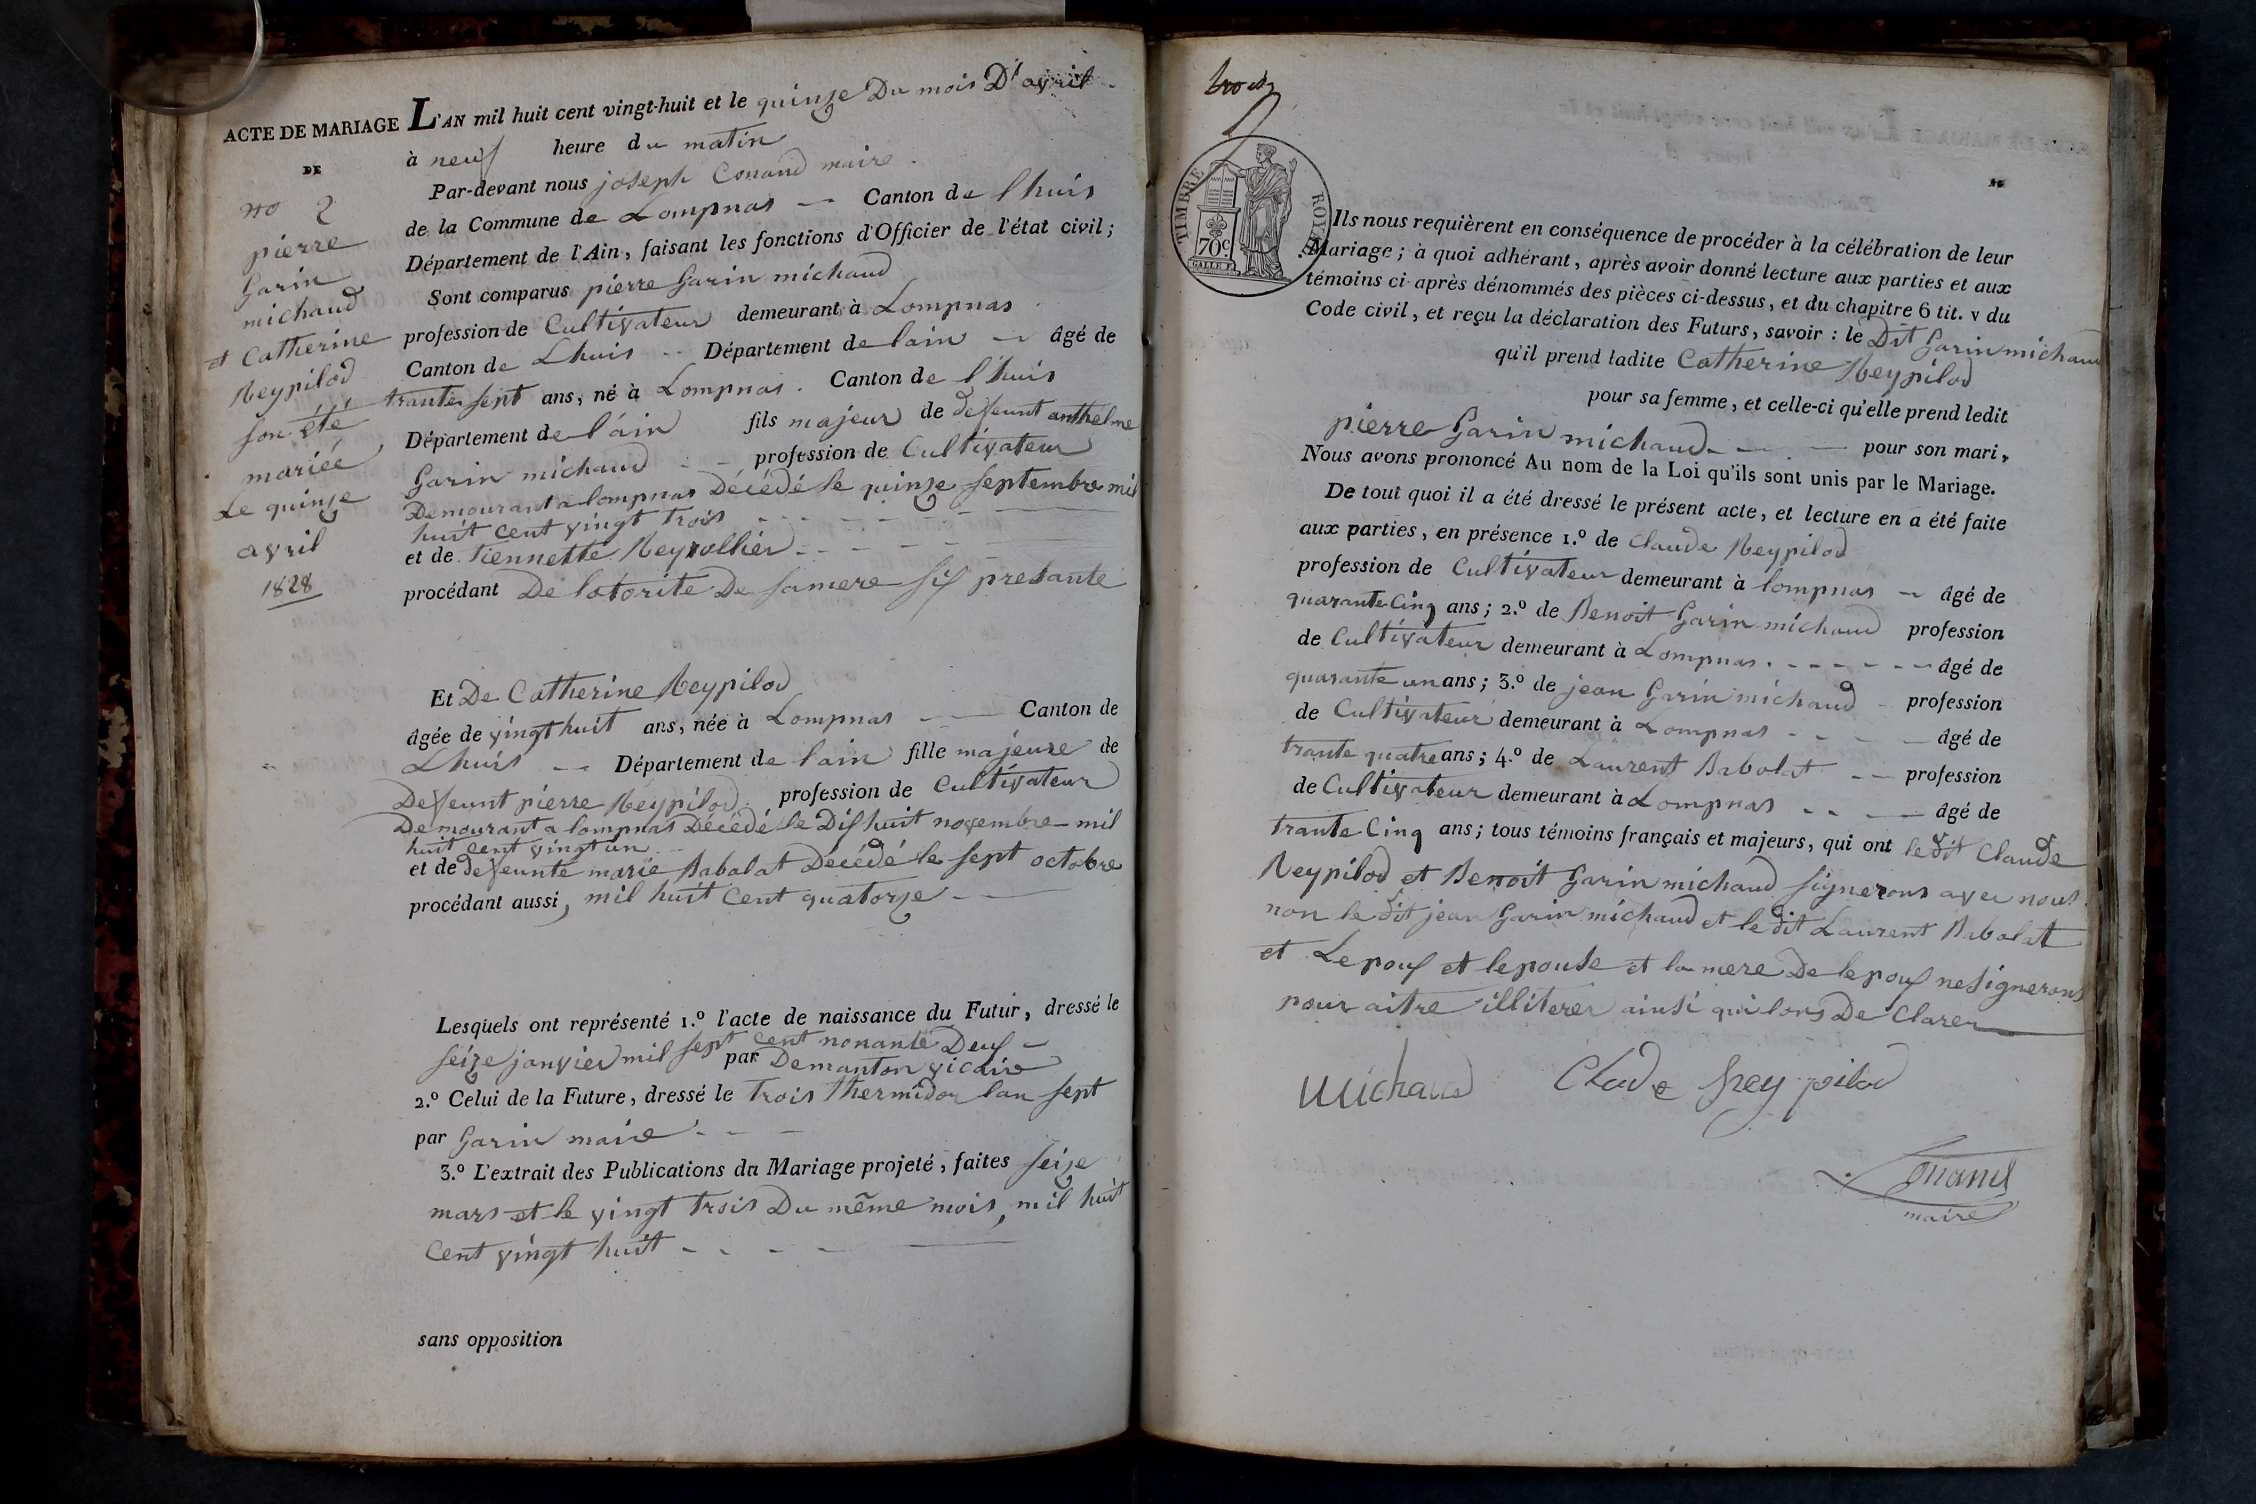 ACTE DE MARIAGE
DE
no 2
pierre
Garin
michaud
et Catherine
Reypilod
son été
mariéé
Le quinze
avril
1828
L'AN mil huit cent vingt-huit et le quinze Du mois D'avril
à neuf heure du matin
Par-devant nous joseph Conand maire
de la Commune de Lompnas Canton de lhuis
Département de l'Ain, faisant les fonctions d'Officier de l'état civil;
Sont comparus pierre Garin michaud
profession de Cultivateur demeurant à Lompnas
Canton de Lhuis Département de lain âgé de
trante sept ans, né à Lompnas. Canton de l'huis
Département de l'ain fils majeur de defeunt anthelme
Garin michaud profession de Cultivateur
Demourant a lompnas Décédé le quinze septembre mil
huit cent vingt trois
et de Tiennette Reyrollier
procédant De lotorite De samere sis presante
Et De Catherine Reypilod
âgée de vingt huit ans, née à Lompnas Canton de
Lhuis Département de lain fille majeure de
Defeunt pierre Reypilod profession de Cultivateur
Demourant a lompnas Décédé le Dis huit novembre mil
huit cent vingt un
et de defeunte marie Babolat Décédé le sept octobre
procédant aussi, mil huit Cent quatorze
Lesquels ont représenté 1.º l'acte de naissance du Futur, dressé le
seize janvier mil sept cent nonante Deus
par Demanton vicaire
2.º Celui de la Future, dressé le Trois Thermidor lan sept
par Garin maire
3.º L'extrait des Publications du Mariage projeté, faites seize
mars et le vingt trois Du même mois, mil huit
Cent vingt huit
sans opposition
trois
TIMBRE ROYAL
70 c
Ils nous requièrent en conséquence de procéder à la célébration de leur
Mariage; à quoi adhérant, après avoir donné lecture aux parties et aux
témoins ci-après dénommés des pièces ci-dessus, et du chapitre 6 tit. v du
Code civil, et reçu la déclaration des Futurs, savoir : le Dit Garin michaud
qu'il prend ladite Catherine Reypilod
pour sa femme, et celle-ci qu'elle prend ledit
pierre Garin michaud pour son mari,
Nous avons prononcé Au nom de la Loi qu'ils sont unis par le Mariage.
De tout quoi il a été dressé le présent acte, et lecture en a été faite
aux parties, en présence 1.º de Claude Reypilod
profession de Cultivateur demeurant à lompnas âgé de
quarante Cinq ans; 2.º de Benoit Garin michaud profession
de Cultivateur demeurant à Lompnas. âgé de
quarante un ans; 3.º de jean Garin michaud profession
de Cultivateur demeurant à Lompnas âgé de
trante quatre ans; 4.º de Laurent Babolat profession
de Cultivateur demeurant à Lompnas âgé de
trante Cinq ans; tous témoins français et majeurs, qui ont le dit Claude
Reypilod et Benoit Garin michaud signerons avec nous
non le dit jean Garin michaud et le dit Laurent Babolat
et Lepous et lepouse et la mere De lepous nesignerons
pour aitre illiterer ainsi qui lons De Clarer
Michaud Clode Reypilod
Conand
maire